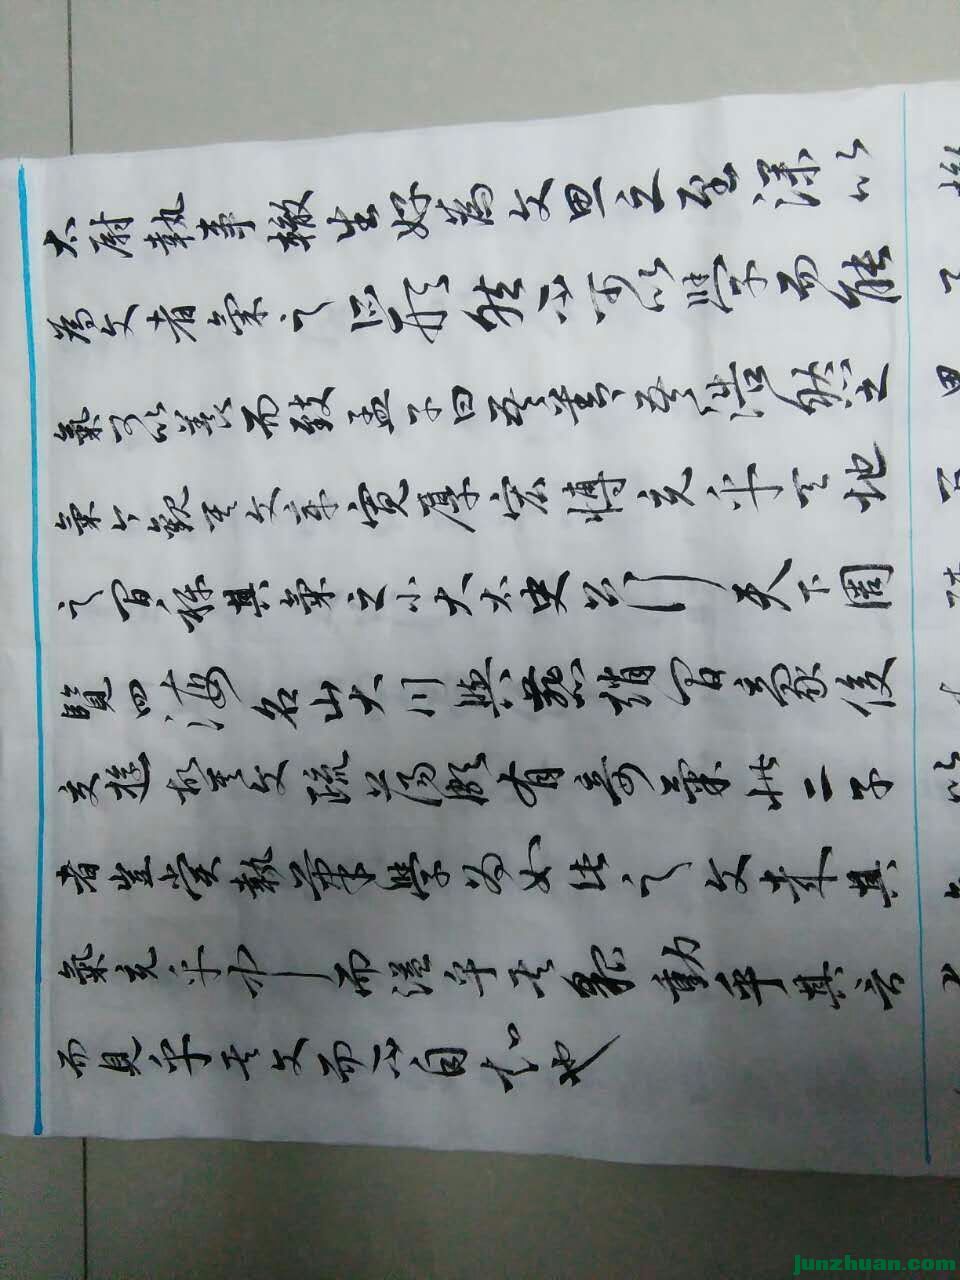 太尉執事轍生好為文思之至深以
為文者氣之所形然不可以學而能
氣可以養而致孟子曰吾善養吾浩然之
氣今觀其文章寬厚宏博充乎天地
之間稱其氣之小大太史公行天下周
覽四海名山大川與燕趙間豪俊
交遊故其文疏蕩頗有奇氣此二子
者豈嘗執筆學為如此之文哉其
氣充乎中而溢乎其貌動乎其言
而見乎其文而不自知也
junzhuan.com